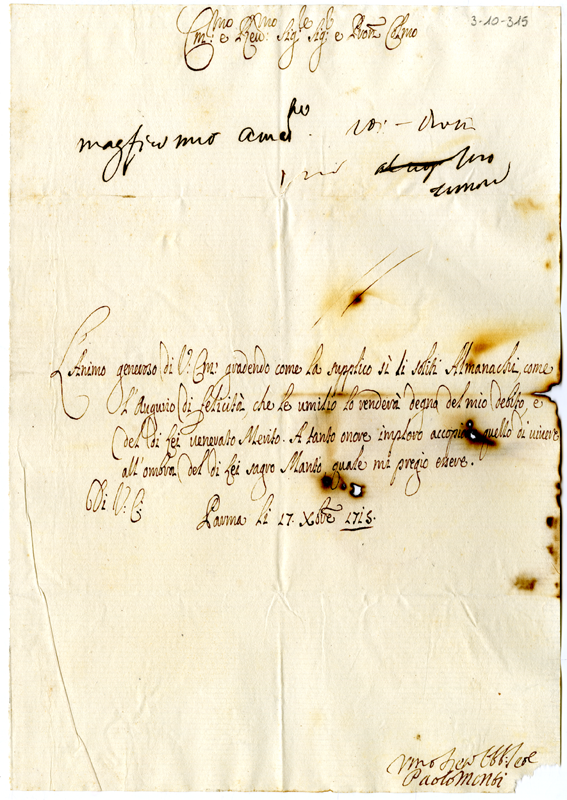 3-10-315
Em: e Rev: Sig: Sig: e Pron Colmo
magfico mio amas
L'Animo generoso di V: Em: gradendo come la supplico sì li soliti Almanachi come
l'Augurio di felicità che le umilio lo renderà degna del mio debito, e
del di Lei venerato Merito. A tanto onore imploro accopi quello di vivere
all'ombra del di Lei sagro Manto quale mi pregio essere.
Di V: E:
Parma li 17. Xbre 1715.
Paolo Monti